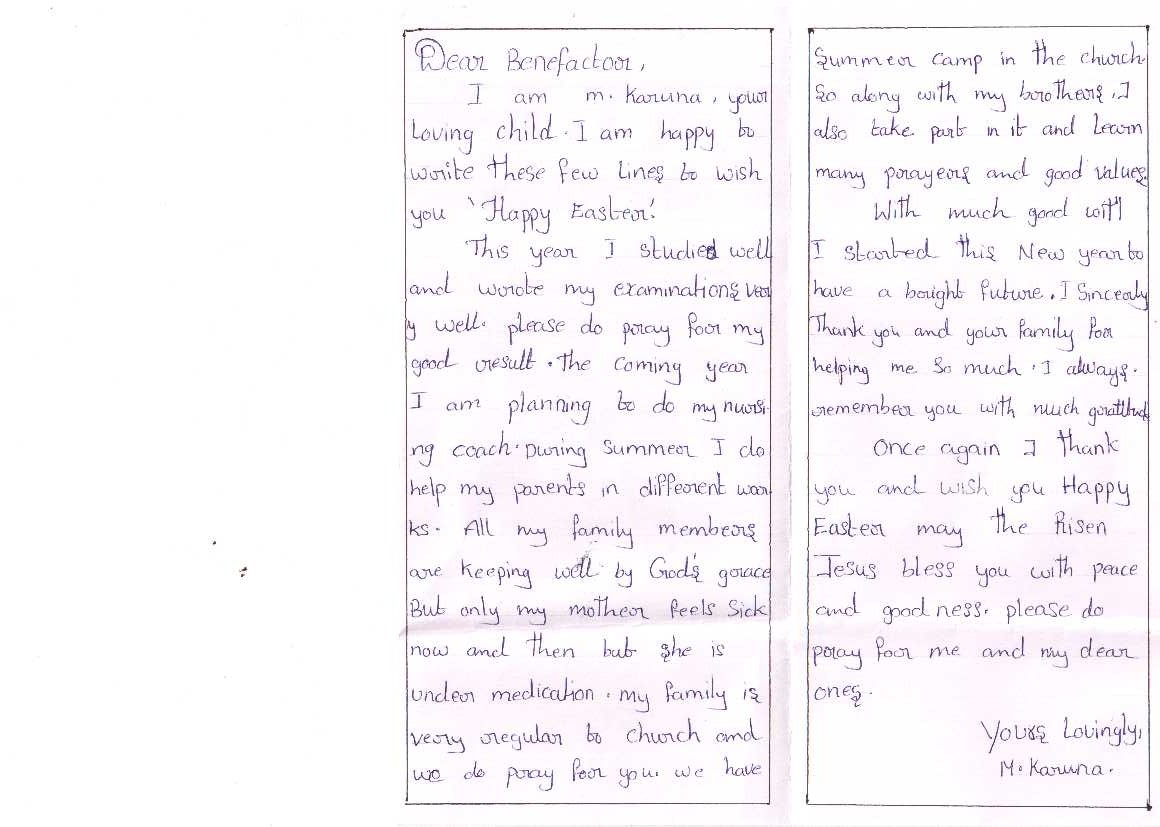 Dear Benefactor,
I am M. Karuna, your
Loving child. I am happy to
write these few lines to wish
you 'Happy Easter!'
This year I studied well
and wrote my examinations ver
y well. please do pray for my
good result. The coming year
I am planning to do my nursi
ng coach. During summer I do
help my parents in different wor
ks. All my family members
are keeping well by God's grace
But only my mother feels sick
now and then but she is
under medication. my family is
very regular to church and
we do pray for you. we have
Summer camp in the church.
So along with my brothers, I
also take part in it and Learn
many prayers and good values.
With much good will
I started this New year to
have a bright future. I Sincerly
Thank you and your family for
helping me so much. I always.
remember you with much gratitud
Once again I thank
you and wish you Happy
Easter may the Risen
Jesus bless you with peace
and good ness. please do
pray for me and my dear
ones.
Yours Lovingly,
M. Karuna.